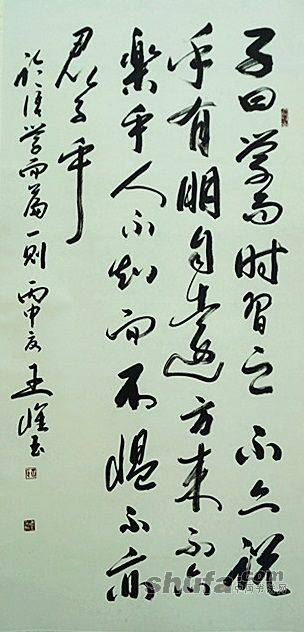 子曰学而时習之不亦说
乎有朋自遠方来不亦
樂乎人不知而不愠不亦
君子乎
论语学而篇一则 丙申夏 王
shufa.com